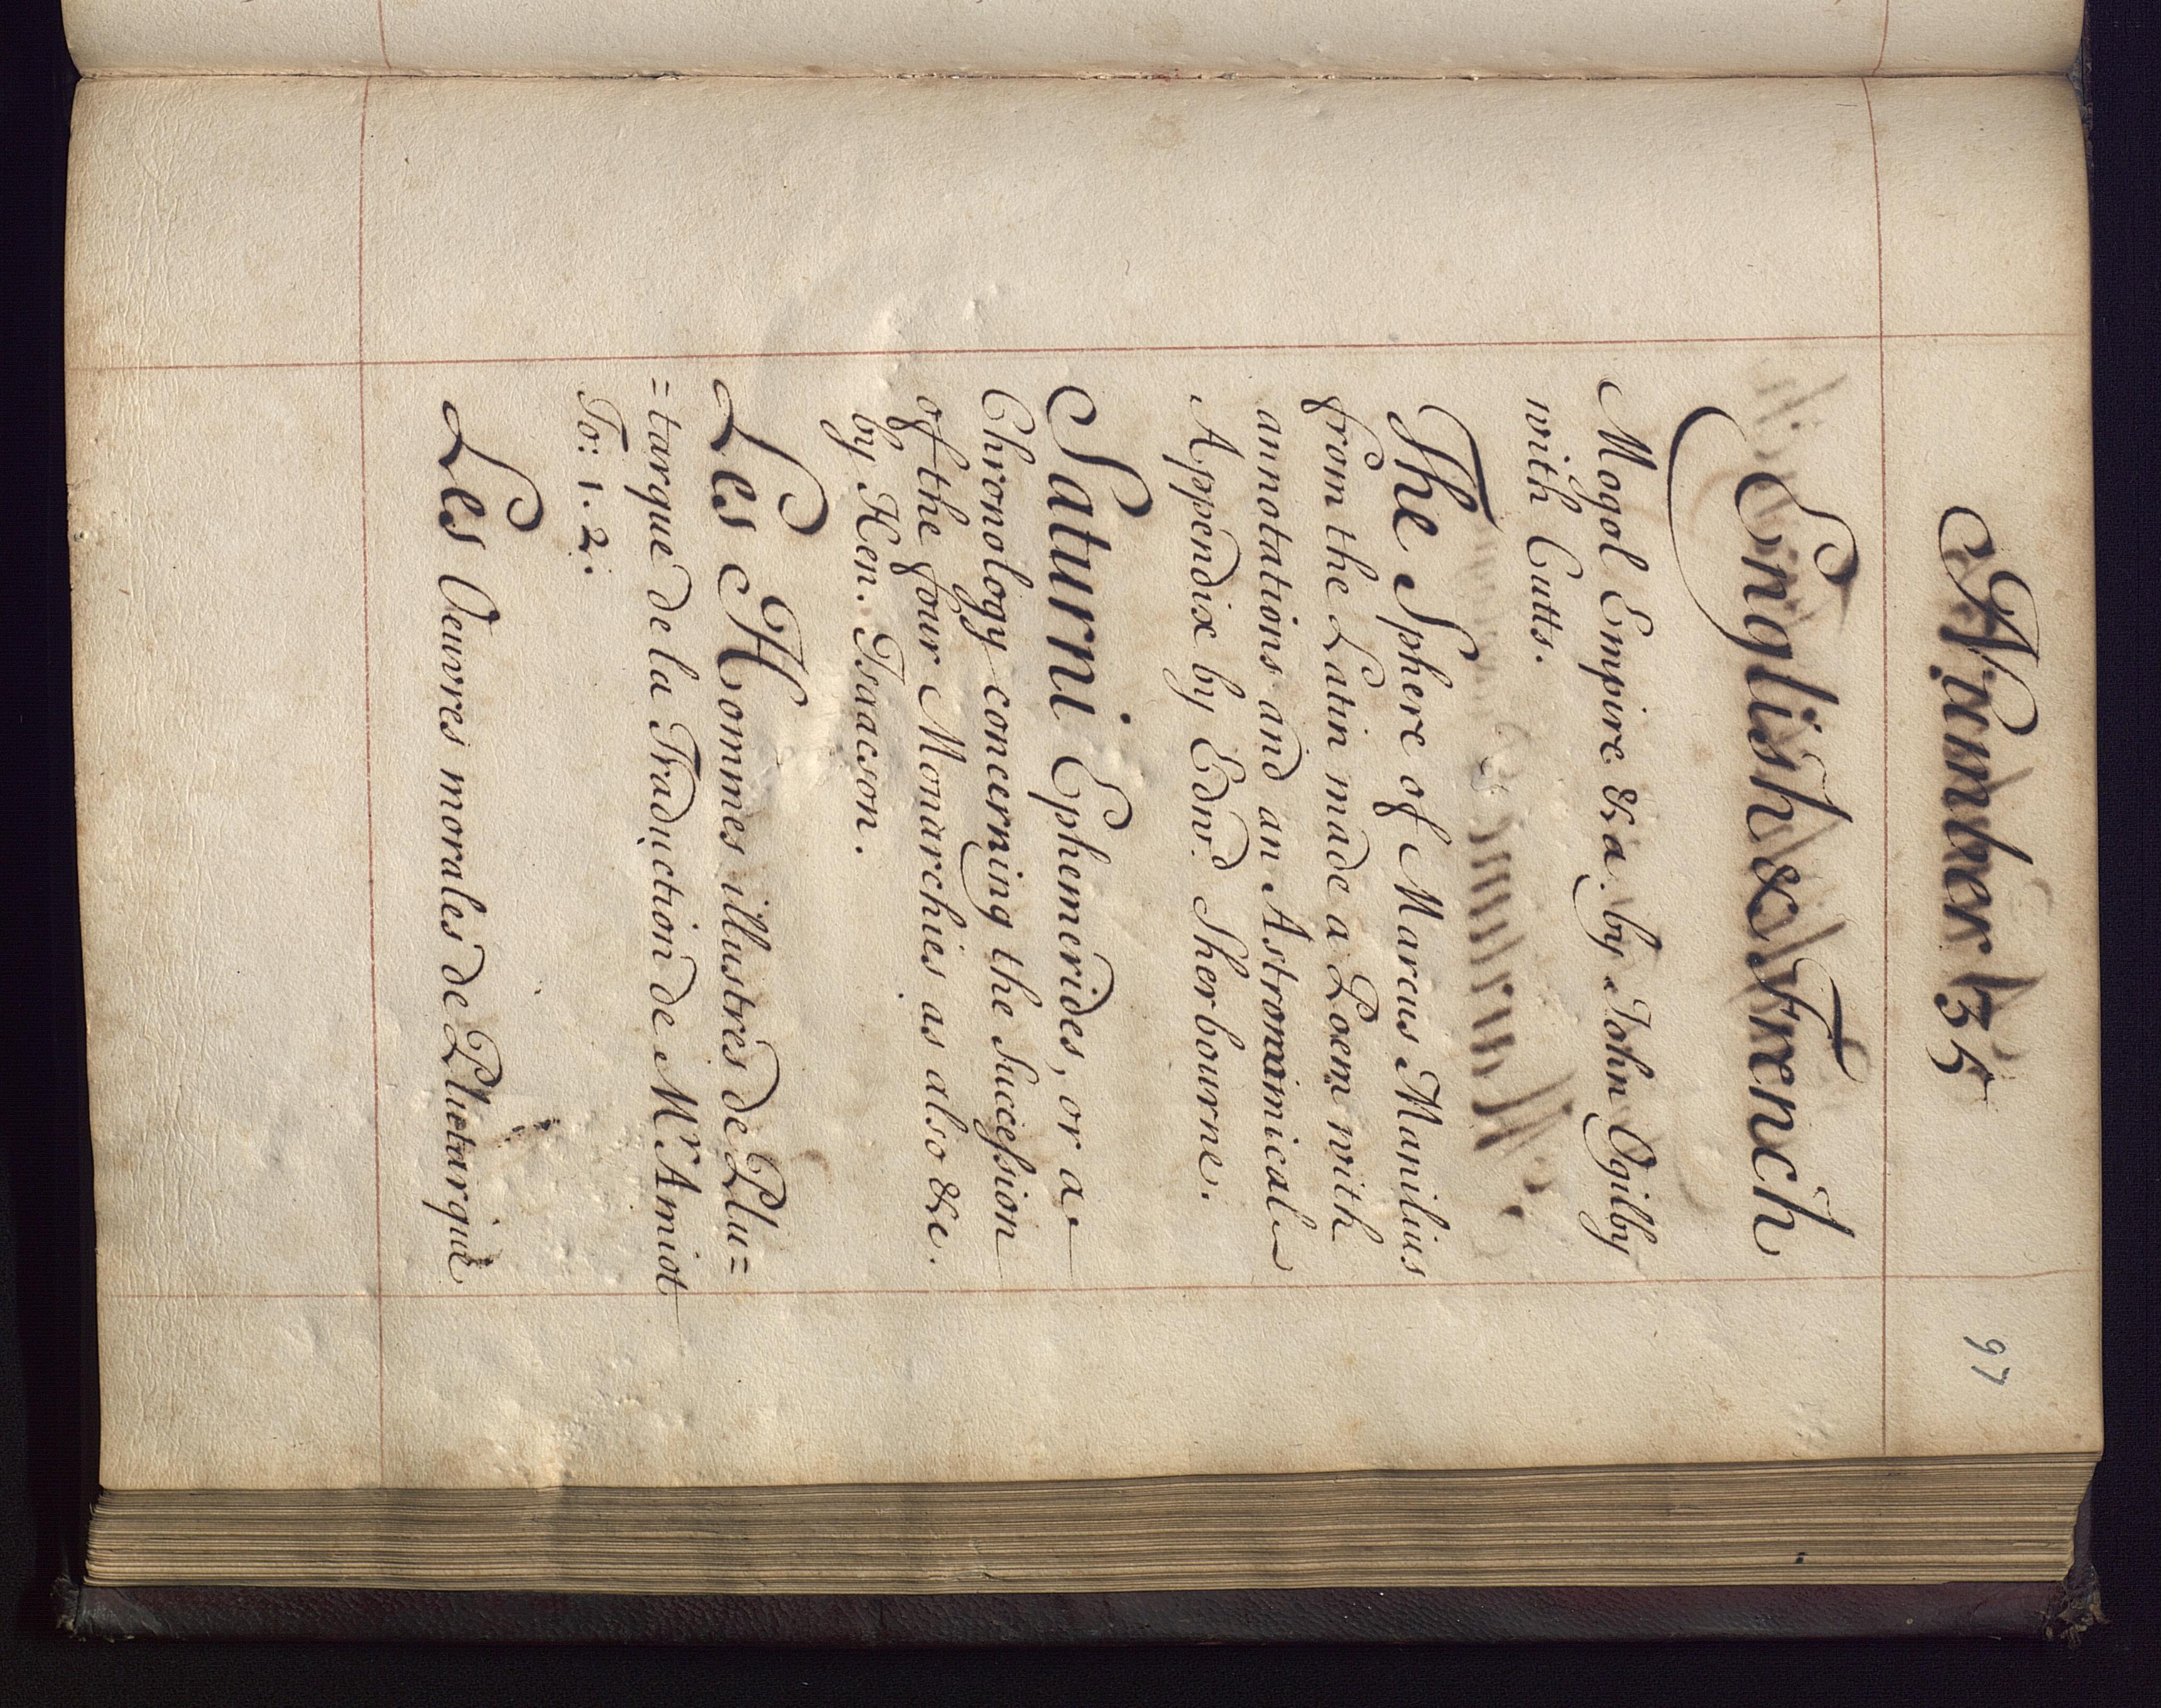 Number 35
97
English & French
Mogol Empire &a. by John Ogilby
with Cutts.
The Sphere of Marcus Manilius
from the Latin made a Poem with
annotations and an Astronimical
Appendix by Edwd. Sherbourne.
Saturni Ephemerides, or a
Chronology concerning the Succession
of the four Monarchies as also &c.
by Hen. Isaacson.
Les Hommes illustres de Plu=
=tarque de la Traduction de Mr. Amiot
To: 1. 2.
Les Oeuvres morales de Plutarque